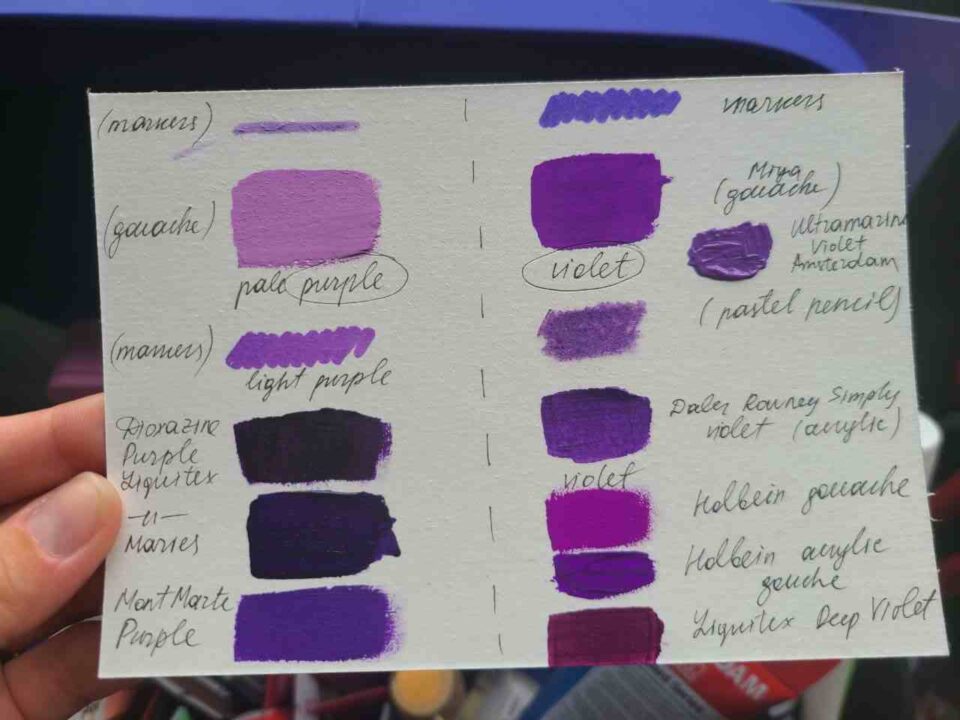 (markers)
(gouache)
pale purple
(markers)
light purple
Dioxazine
Purple
Liquitex
-"-
Maries
Mont Marte
Purple
markers
Miya
(gouache)
violet
Ultramarine
Violet
Amsterdam
(pastel pencil)
Daler Rowney Simply
violet (acrylic)
violet
Holbein gouache
Holbein acrylic
gouche
Liquitex Deep Violet
DAM